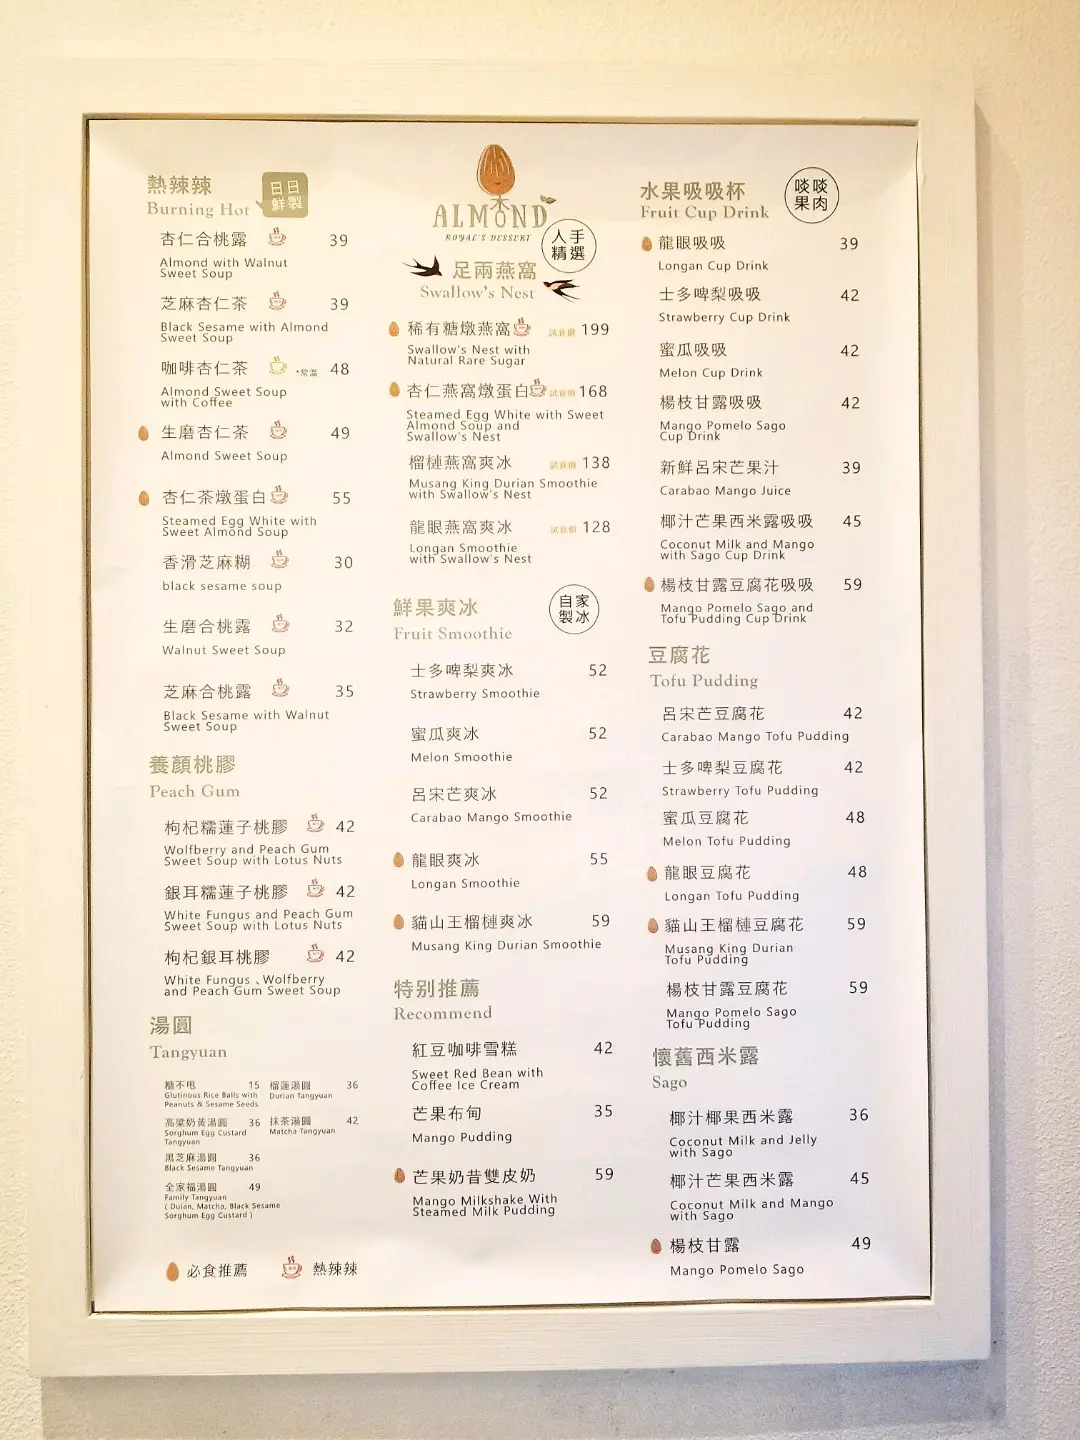 熱辣辣
日日
鮮製
Burning Hot
杏仁合桃露 39
Almond with Walnut
Sweet Soup
芝麻杏仁茶 39
Black Sesame with Almond
Sweet Soup
咖啡杏仁茶 *常溫 48
Almond Sweet Soup
with Coffee
生磨杏仁茶 49
Almond Sweet Soup
杏仁茶燉蛋白 55
Steamed Egg White with
Sweet Almond Soup
香滑芝麻糊 30
black sesame soup
生磨合桃露 32
Walnut Sweet Soup
芝麻合桃露 35
Black Sesame with Walnut
Sweet Soup
養顏桃膠
Peach Gum
枸杞糯蓮子桃膠 42
Wolfberry and Peach Gum
Sweet Soup with Lotus Nuts
銀耳糯蓮子桃膠 42
White Fungus and Peach Gum
Sweet Soup with Lotus Nuts
枸杞銀耳桃膠 42
White Fungus 、Wolfberry
and Peach Gum Sweet Soup
湯圓
Tangyuan
糖不甩 15
Glutinous Rice Balls with
Peanuts & Sesame Seeds
榴蓮湯圓 36
Durian Tangyuan
高粱奶黃湯圓 36
Sorghum Egg Custard
Tangyuan
抹茶湯圓 42
Matcha Tangyuan
黑芝麻湯圓 36
Black Sesame Tangyuan
全家福湯圓 49
Family Tangyuan
( Duian, Matcha, Black Sesame
Sorghum Egg Custard )
必食推薦 熱辣辣
ALMOND
ROYAL'S DESSERT
人手
精選
足兩燕窩
Swallow's Nest
稀有糖燉燕窩 試食價 199
Swallow's Nest with
Natural Rare Sugar
杏仁燕窩燉蛋白 試食價 168
Steamed Egg White with Sweet
Almond Soup and
Swallow's Nest
榴槤燕窩爽冰 試食價 138
Musang King Durian Smoothie
with Swallow's Nest
龍眼燕窩爽冰 試食價 128
Longan Smoothie
with Swallow's Nest
鮮果爽冰
自家
製冰
Fruit Smoothie
士多啤梨爽冰 52
Strawberry Smoothie
蜜瓜爽冰 52
Melon Smoothie
呂宋芒爽冰 52
Carabao Mango Smoothie
龍眼爽冰 55
Longan Smoothie
貓山王榴槤爽冰 59
Musang King Durian Smoothie
特別推薦
Recommend
紅豆咖啡雪糕 42
Sweet Red Bean with
Coffee Ice Cream
芒果布甸 35
Mango Pudding
芒果奶昔雙皮奶 59
Mango Milkshake With
Steamed Milk Pudding
水果吸吸杯
啖啖
果肉
Fruit Cup Drink
龍眼吸吸 39
Longan Cup Drink
士多啤梨吸吸 42
Strawberry Cup Drink
蜜瓜吸吸 42
Melon Cup Drink
楊枝甘露吸吸 42
Mango Pomelo Sago
Cup Drink
新鮮呂宋芒果汁 39
Carabao Mango Juice
椰汁芒果西米露吸吸 45
Coconut Milk and Mango
with Sago Cup Drink
楊枝甘露豆腐花吸吸 59
Mango Pomelo Sago and
Tofu Pudding Cup Drink
豆腐花
Tofu Pudding
呂宋芒豆腐花 42
Carabao Mango Tofu Pudding
士多啤梨豆腐花 42
Strawberry Tofu Pudding
蜜瓜豆腐花 48
Melon Tofu Pudding
龍眼豆腐花 48
Longan Tofu Pudding
貓山王榴槤豆腐花 59
Musang King Durian
Tofu Pudding
楊枝甘露豆腐花 59
Mango Pomelo Sago
Tofu Pudding
懷舊西米露
Sago
椰汁椰果西米露 36
Coconut Milk and Jelly
with Sago
椰汁芒果西米露 45
Coconut Milk and Mango
with Sago
楊枝甘露 49
Mango Pomelo Sago